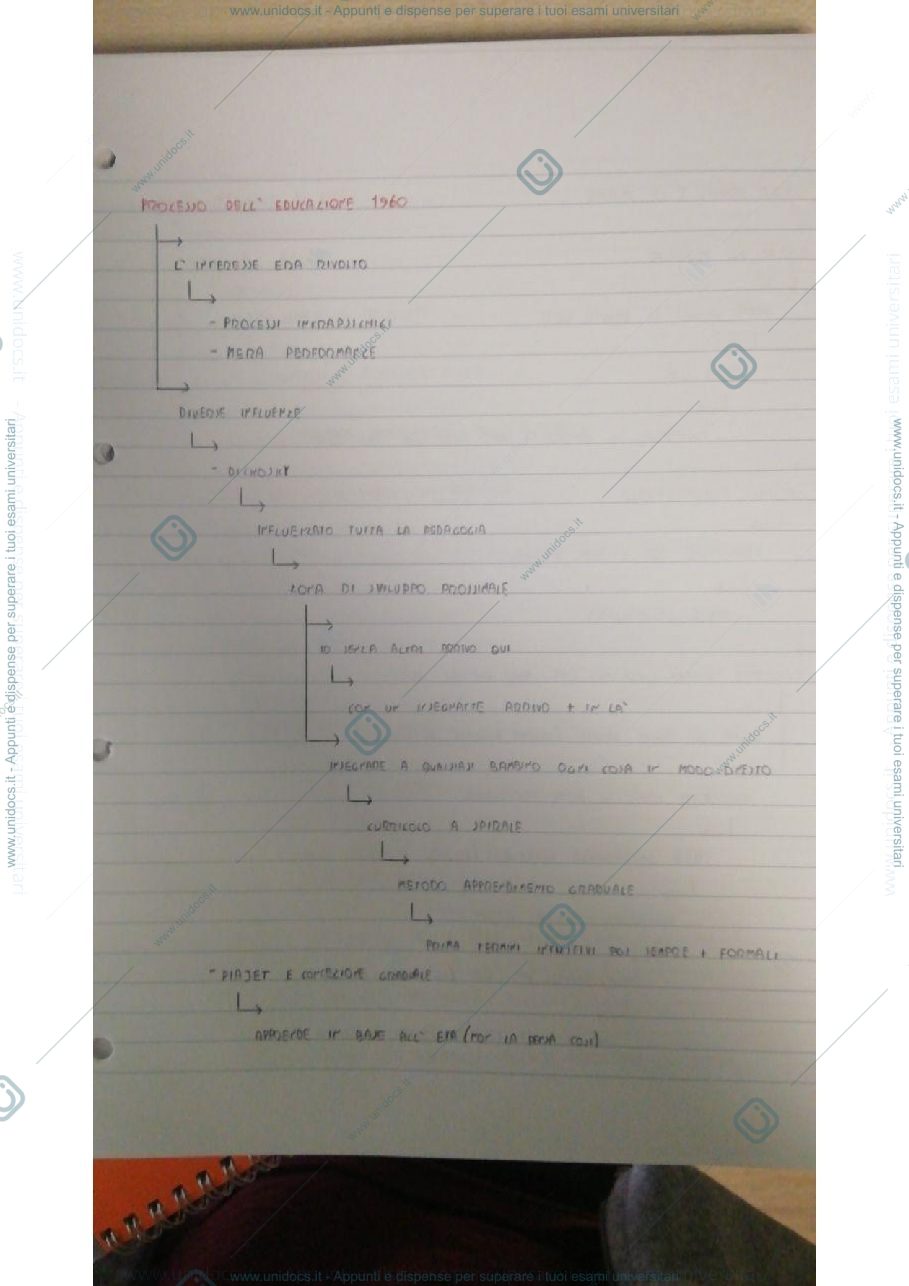 www.unidocs.it - Appunti e dispense per superare i tuoi esami universitari
PROCESSO DELL' EDUCAZIONE 1960
L' INTERESSE ERA RIVOLTO
- PROCESSI INTRAPSICHICI
- MERA PERFORMANCE
DIVERSE INFLUENZE
-
INFLUENZATO TUTTA LA PEDAGOGIA
ZONA DI SVILUPPO PROSSIMALE
IO SENZA ALTRI ARRIVO QUI
CON UN INSEGNANTE ARRIVO + IN LA'
INSEGNARE A QUALSIASI BAMBINO OGNI COSA IN MODO ONESTO
CURRICOLO A SPIRALE
METODO APPRENDIMENTO GRADUALE
PRIMA TERMINI INTUITIVI POI SEMPRE + FORMALI
- PIAJET E CONCEZIONE GRADUALE
APPRENDE IN BASE ALL' ETA (NON LA PENSA COSI)
www.unidocs.it - Appunti e dispense per superare i tuoi esami universitari
www.unidocs.it - Appunti e dispense per superare i tuoi esami universitari
www.unidocs.it - Appunti e dispense per superare i tuoi esami universitari